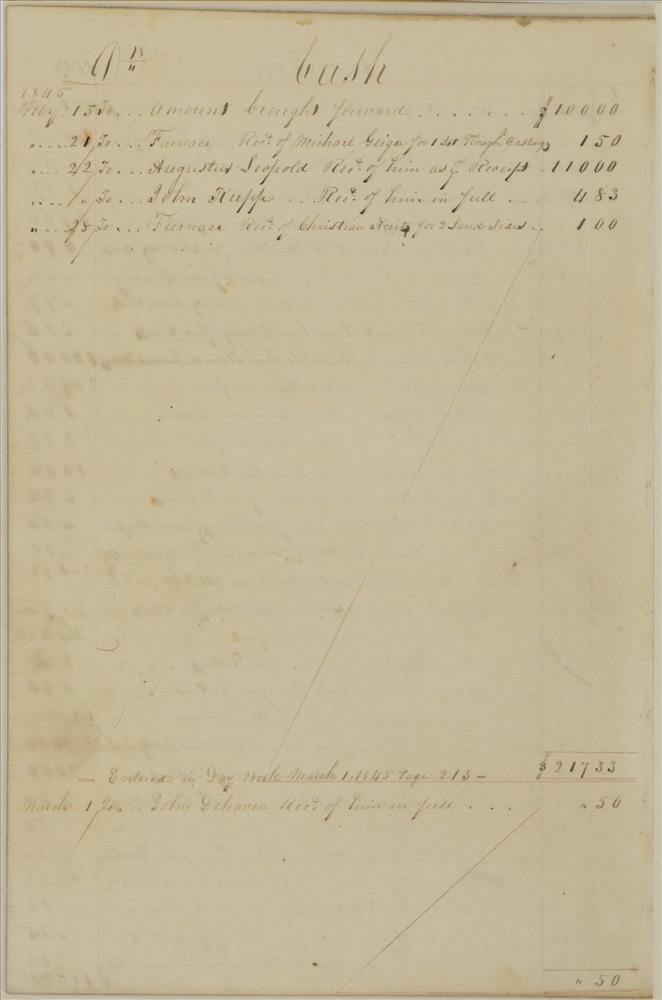 Dr Cash
1845
Feby. 15 To ... Amount brought forward ....... $ 100 00
" ... 21 To ... Furnace Recd. of Michael Geiger for 1 Set Plough Castings 1 50
" ... 22 To ... Augustus Leopold Recd. of him as pr. Receipt . 110 00
" ... " To ... John Kupp ... Recd. of him in full ... 4 83
" ... 28 To ... Furnace Recd. of Christian for 2 Land Sides .. 1 00
— Entered in Day Book March 1. 1845 Page 213 — $ 217 33
March . 1 To ... John Dehaven Recd. of him in full .... " 50
" 50